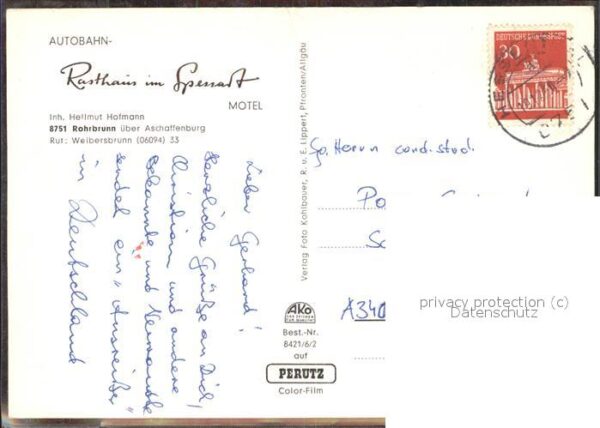 AUTOBAHN-
Rasthaus im Spessart
MOTEL
Inh. Hellmut Hofmann
8751 Rohrbrunn über Aschaffenburg
Ruf: Weibersbrunn (06094) 33
Lieber Gerhard!
Herzliche Grüße an Dich,
Christian und andere
Bekannte und Verwandte
sendet ein "Ausreißer"
in Deutschland
Verlag Foto Kohlbauer, R. u. E. Lippert, Pfronten/Allgäu
AKO
Best.-Nr.
8421/6/2
auf
PERUTZ
Color-Film
DEUTSCHE BUNDESPOST
30
Herrn cand. stud.
A340
privacy protection (c)
Datenschutz